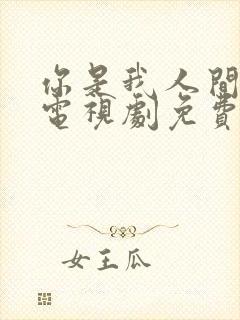 你是我人間
電視劇免費
女王瓜